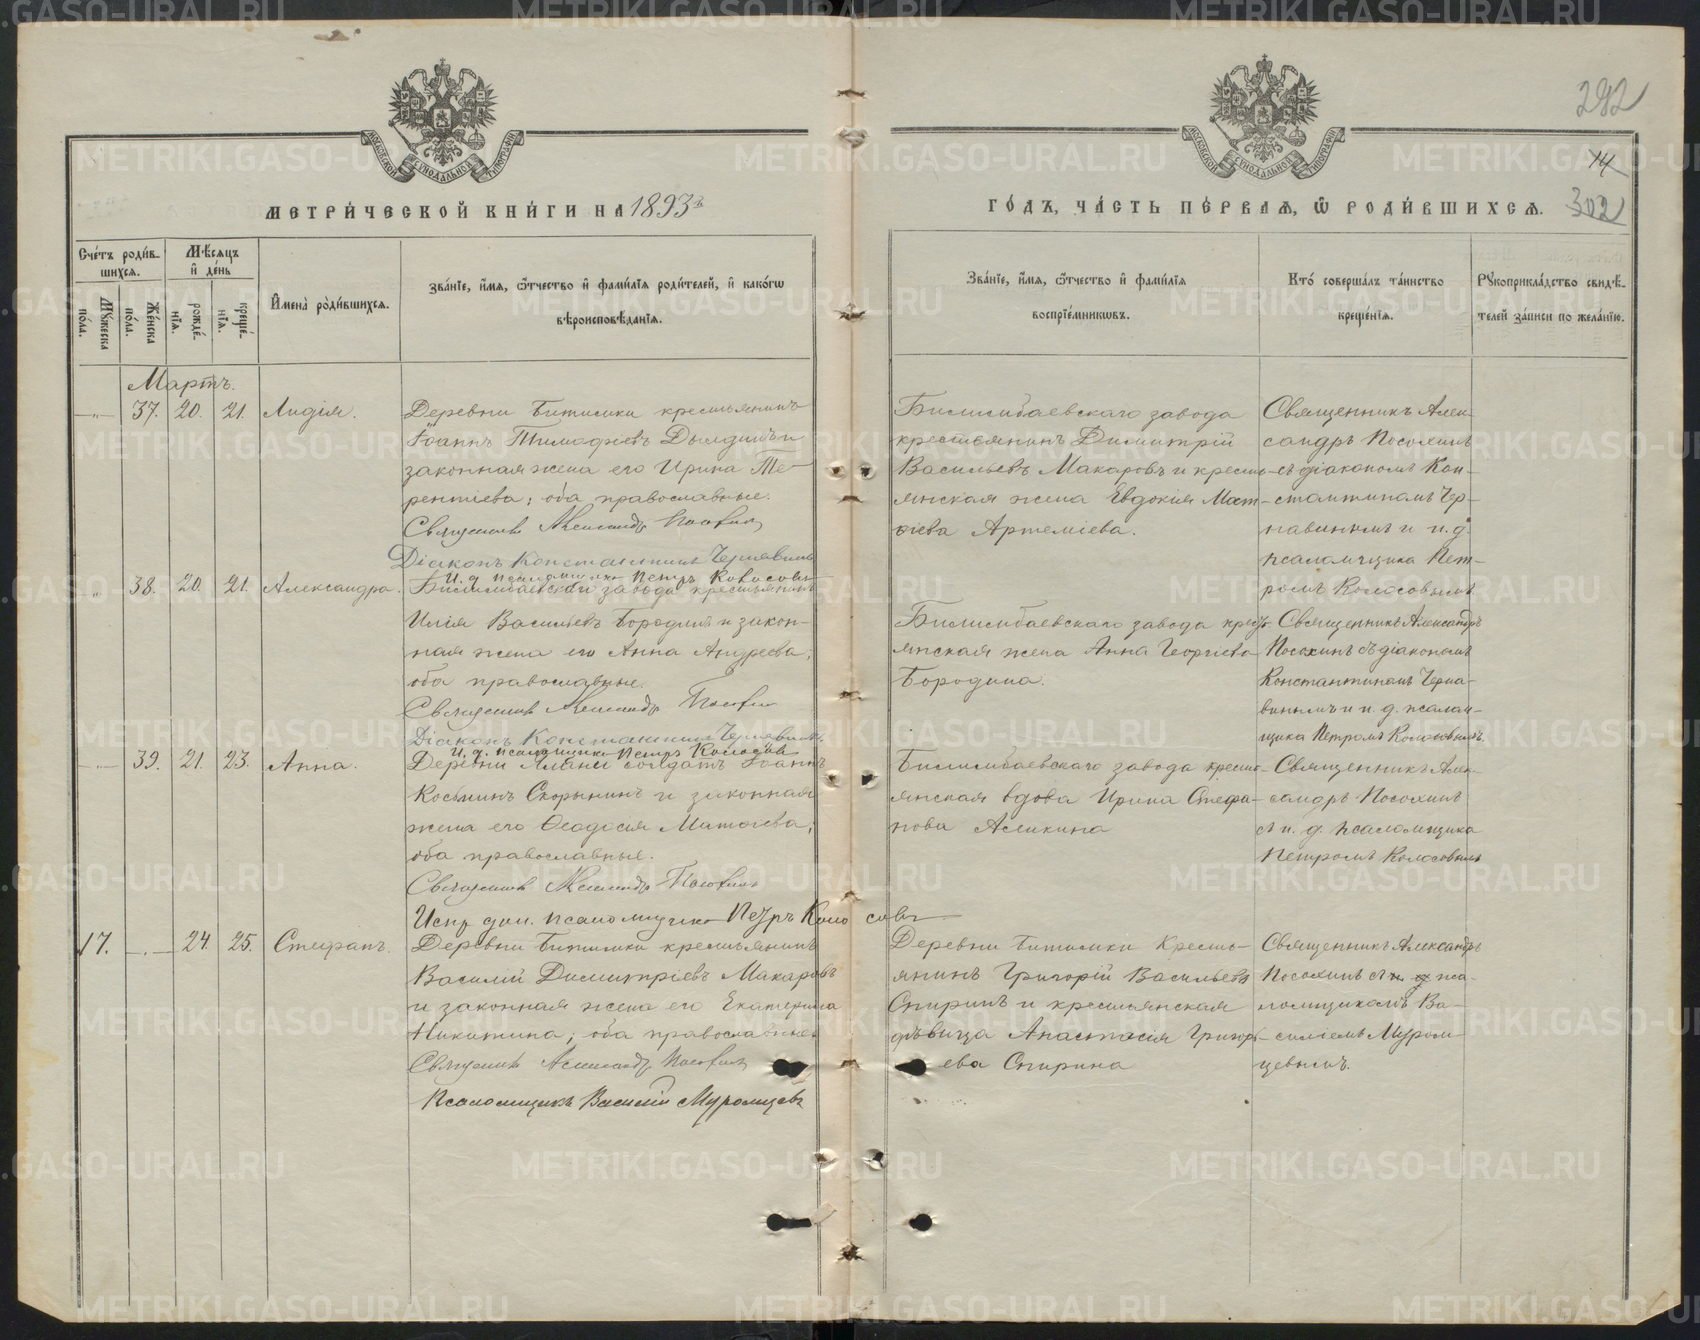 292
14
302
МОСКОВСКОЙ СУНОДАЛЬНОЙ ТИПОГРАФІИ
МОСКОВСКОЙ СУНОДАЛЬНОЙ ТИПОГРАФІИ
МЕТРИ́ЧЕСКОЙ КНИ́ГИ НА 1893й
ГО́ДЪ, ЧА́СТЬ ПЕ́РВАѦ, Ѽ РОДИ́ВШИХСѦ.
Сче́тъ роди́вшихсѧ.
Мꙋ́жеска по́ла.
Же́нска по́ла.
Мѣ́сѧцъ и҆ де́нь
рожде́нїѧ.
креще́нїѧ.
И҆мена̀ роди́вшихсѧ.
Зва́нїе, и҆́мѧ, ѻ҆́тчество и҆ фами́лїѧ роди́телей, и҆ како́гѡ
вѣроисповѣ́данїѧ.
Зва́нїе, и҆́мѧ, ѻ҆́тчество и҆ фами́лїѧ
воспрїе́мникѡвъ.
Кто́ соверша́лъ та́инство
креще́нїѧ.
Рꙋкоприкла́дство свидѣ́-
телей за́писи по жела́нїю.
Мартъ.
—„— 37. 20. 21. Лидія.
Деревни Битимки крестьянинъ
Іоаннъ Тимофіевъ Дылдинъ и
законная жена его Ирина Те-
рентіева; оба православные.
Священникъ Александръ Посохинъ
Діаконъ Константинъ Чернавинъ
И. д. псаломщика Петръ Колосовъ
Билимбаевскаго завода
крестьянинъ Димитрій
Васильевъ Макаровъ и кресть-
янская жена Евдокія Мат-
ѳіева Артеміева.
Священникъ Алек-
сандръ Посохинъ
съ діакономъ Кон-
стантиномъ Чер-
навинымъ и и. д.
псаломщика Пет-
ромъ Колосовымъ
„ 38. 20. 21. Александра.
Билимбаевскаго завода крестьянинъ
Илія Васильевъ Бородинъ и закон-
ная жена его Анна Андреева;
оба православные.
Священникъ Александръ Посохинъ
Діаконъ Константинъ Чернавинъ
И. д. псаломщика Петръ Колосовъ
Билимбаевскаго завода кресть-
янская жена Анна Георгіева
Бородина.
Священникъ Александръ
Посохинъ съ діакономъ
Константиномъ Черна-
винымъ и и. д. псалом-
щика Петромъ Колосовымъ.
—„— 39. 21. 23. Анна.
Деревни солдатъ Іоаннъ
Косминъ Скорынинъ и законная
жена его Ѳеодосія Матѳіева;
оба православные.
Священникъ Александръ Посохинъ
Испр. дол. псаломщика Петръ Колосовъ
Билимбаевскаго завода кресть-
янская вдова Ирина Стефа-
нова Аликина
Священникъ Алек-
сандръ Посохинъ
съ и. д. псаломщика
Петромъ Колосовымъ
17. —„— 24. 25. Стефанъ.
Деревни Битимки крестьянинъ
Василій Димитріевъ Макаровъ
и законная жена его Екатерина
Никитина; оба православные
Священникъ Александръ Посохинъ
Псаломщикъ Василій Муромцевъ
Деревни Битимки Кресть-
янинъ Григорій Васильевъ
Спиринъ и крестьянская
дѣвица Анастасія Григорь-
ева Спирина
Священникъ Александръ
Посохинъ съ и. д. пса-
ломщикомъ Ва-
силіемъ Муром-
цевымъ.